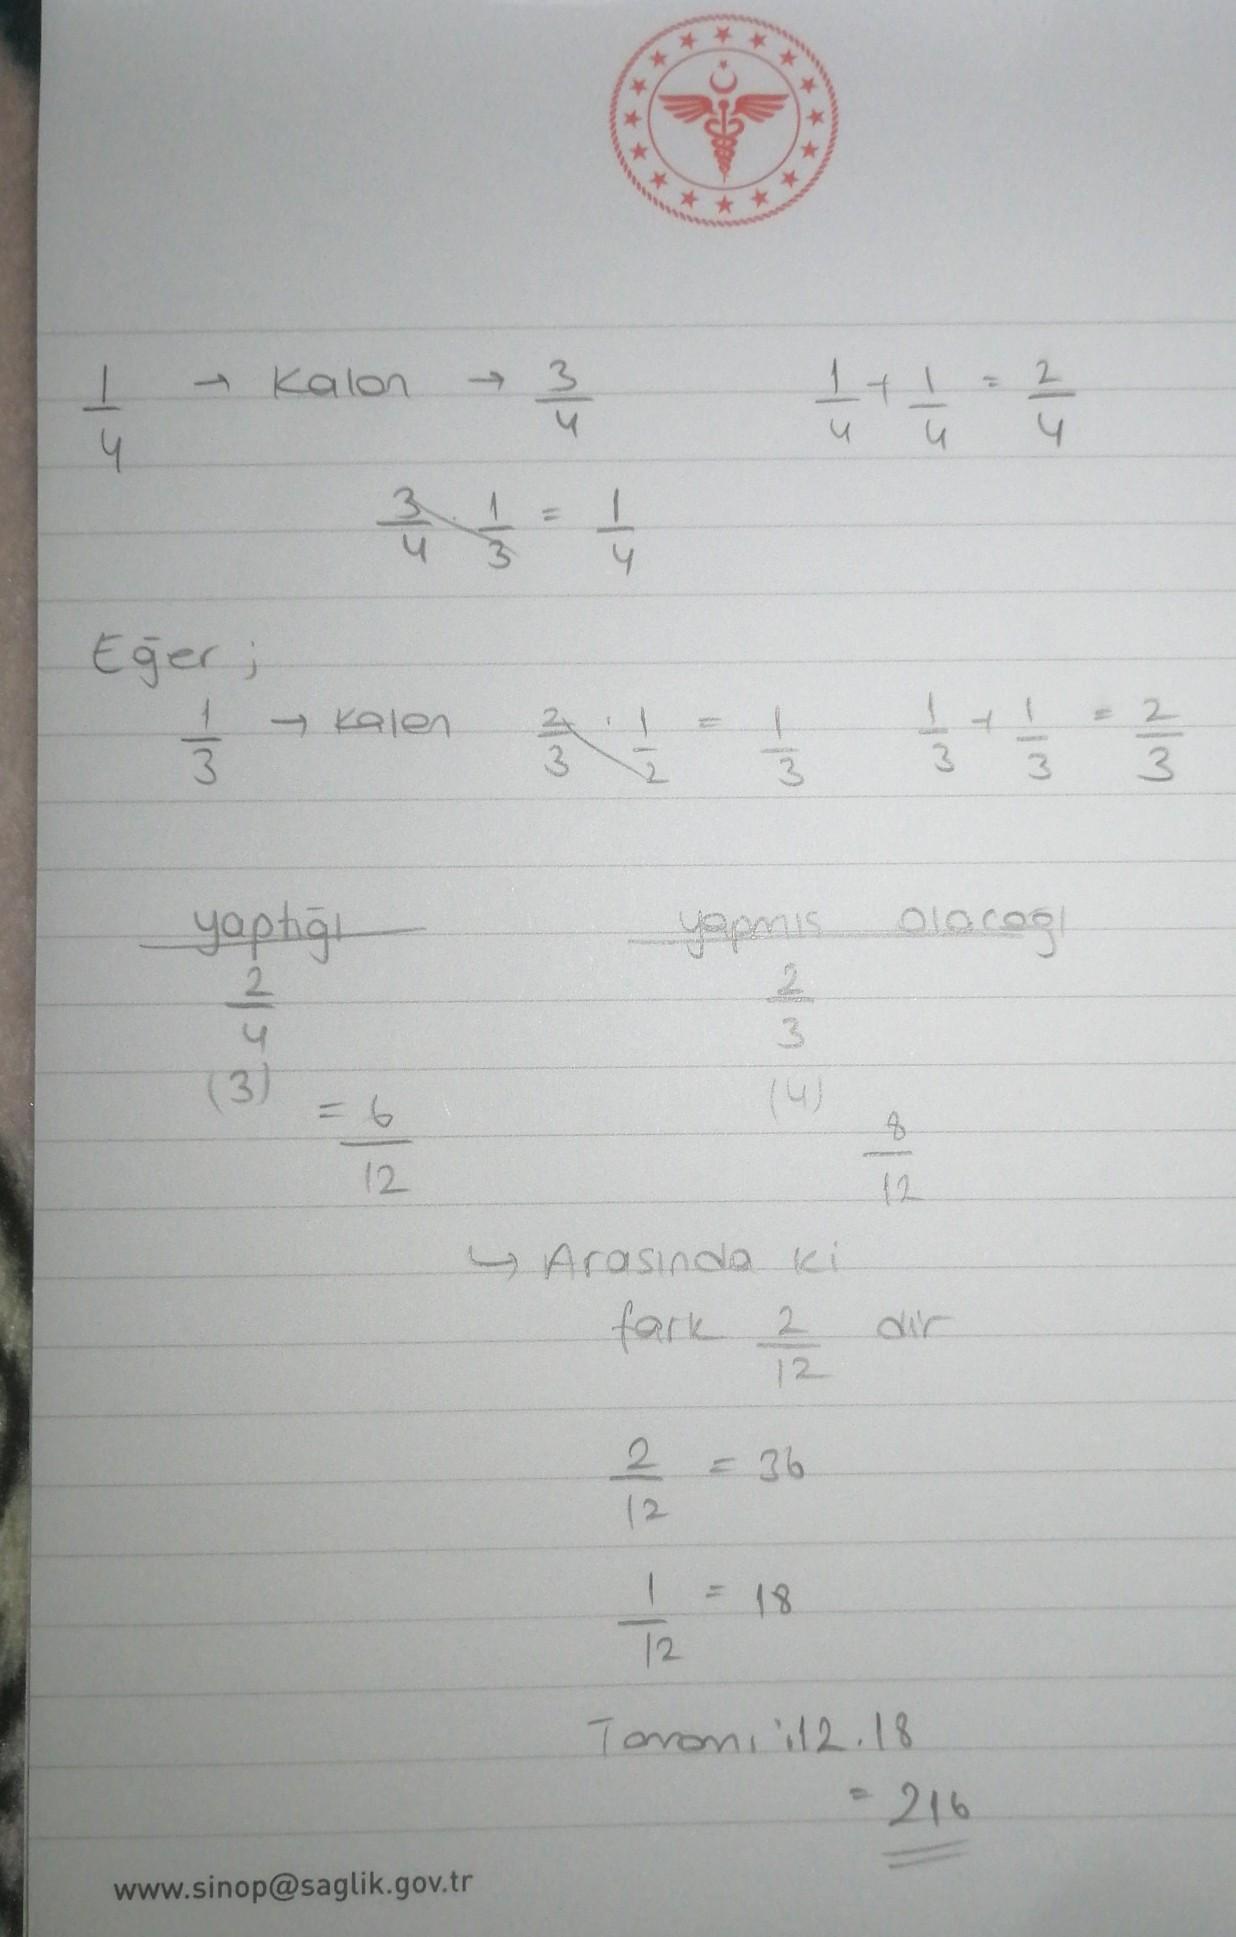 1/4 → Kalan → 3/4 1/4 + 1/4 = 2/4
3/4 . 1/3 = 1/4
Eğer ;
1/3 → kalan 2/3 . 1/2 = 1/3 1/3 + 1/3 = 2/3
yaptığı yapmış olacağı
2/4 2/3
(3) (4)
= 6/12 8/12
↳ Arasında ki
fark 2/12 dir
2/12 = 36
1/12 = 18
Tamamı : 12 . 18
= 216
www.sinop@saglik.gov.tr